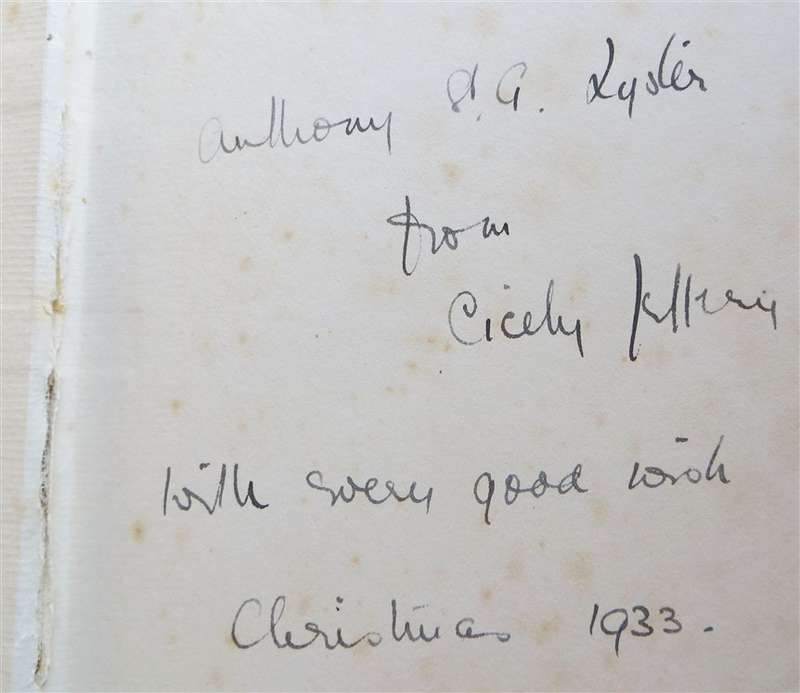 Anthony St. G. Lyster
from
Cicely Jeffery
with every good wish
Christmas 1933.